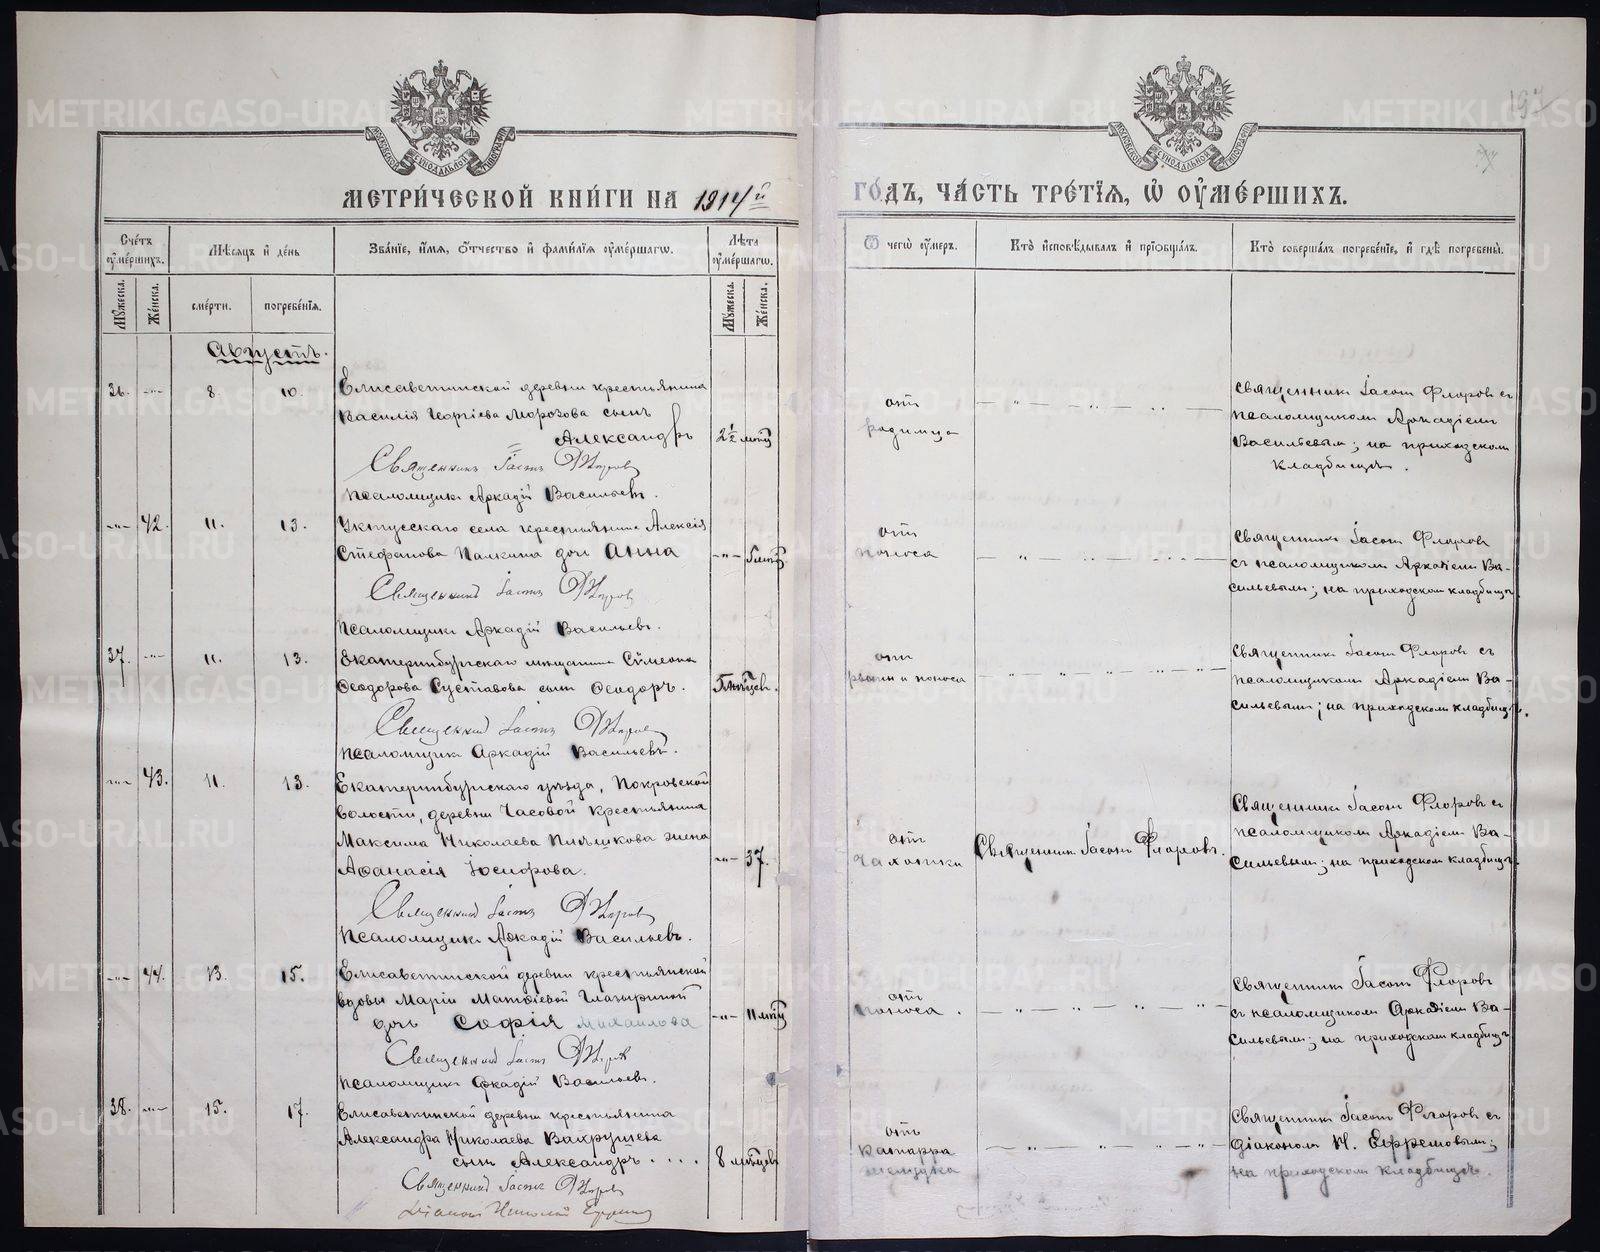 МЕТРИ́ЧЕСКОЙ КНИ́ГИ НА 1914й
ГО́ДЪ, ЧА́СТЬ ТРЕ́ТЇЯ, Ѡ҆ ОУ҆МЕ́РШИХЪ.
197
Сче́тъ оу҆ме́ршихъ.
Мѣ́сяцъ и҆ де́нь
Зва́нїе, и҆́мя, ѻ҆́тчество и҆ фами́лїя оу҆ме́ршагѡ.
Лѣ́та оу҆ме́ршагѡ.
Ѿ чегѡ̀ оу҆́меръ.
Кто̀ и҆сповѣ́дывалъ и҆ прїѡбща́лъ.
Кто̀ соверша́лъ погребе́нїе, и҆ гдѣ̀ погребены̀.
Му́жеска.
Же́нска.
сме́рти.
погребе́нїя.
Му́жеска.
Же́нска.
Августъ.
36. —"— 8. 10.
Елисаветинской деревни крестьянина
Василія Георгіева Морозова сынъ
Александръ
2½ мѣц
Священникъ Іасонъ Флоровъ
Псаломщикъ Аркадій Васильевъ.
отъ
родимца
Священникъ Іасонъ Флоровъ съ
псаломщикомъ Аркадіемъ
Васильевымъ; на приходскомъ
кладбищѣ.
—"— 42. 11. 13.
Уктусскаго села крестьянина Алексія
Стефанова Палкина дочь Анна
—"— 5 мѣц
Священникъ Іасонъ Флоровъ
Псаломщикъ Аркадій Васильевъ.
отъ
поноса
Священникъ Іасонъ Флоровъ
съ псаломщикомъ Аркадіемъ Ва-
сильевымъ; на приходскомъ кладбищѣ.
37. —"— 11. 13.
Екатеринбургскаго мѣщанина Сѵмеона
Ѳеодорова Суставова сынъ Ѳеодоръ.
5 мѣсцев.
Священникъ Іасонъ Флоровъ
Псаломщикъ Аркадій Васильевъ.
отъ
рвоты и поноса
Священникъ Іасонъ Флоровъ съ
псаломщикомъ Аркадіемъ Ва-
сильевымъ; на приходскомъ кладбищѣ.
—"— 43. 11. 13.
Екатеринбургскаго уѣзда, Покровской
волости, деревни Часовой крестьянина
Максима Николаева Пьяшкова жена
Аѳанасія
—"— 37.
Священникъ Іасонъ Флоровъ
Псаломщикъ Аркадій Васильевъ.
отъ
чахотки
Священникъ Іасонъ Флоровъ.
Священникъ Іасонъ Флоровъ съ
псаломщикомъ Аркадіемъ Ва-
сильевымъ; на приходскомъ кладбищѣ.
—"— 44. 13. 15.
Елисаветинской деревни крестьянской
вдовы Маріи Матѳіевой Глазыриной
дочь Софія Михаильева
—"— 11 мѣц
Священникъ Іасонъ Флоровъ
Псаломщикъ Аркадій Васильевъ.
отъ
поноса.
Священникъ Іасонъ Флоровъ
съ псаломщикомъ Аркадіемъ Ва-
сильевымъ; на приходскомъ кладбищѣ
38. —"— 15. 17.
Елисаветинской деревни крестьянина
Александра Николаева Вахрушева
сынъ Александръ....
8 мѣсцевъ
Священникъ Іасонъ Флоровъ
Діаконъ Николай Ефремовъ
отъ
катарра
желудка
Священникъ Іасонъ Флоровъ съ
діакономъ Н. Ефремовымъ;
на приходскомъ кладбищѣ.
METRIKI.GASO-URAL.RU